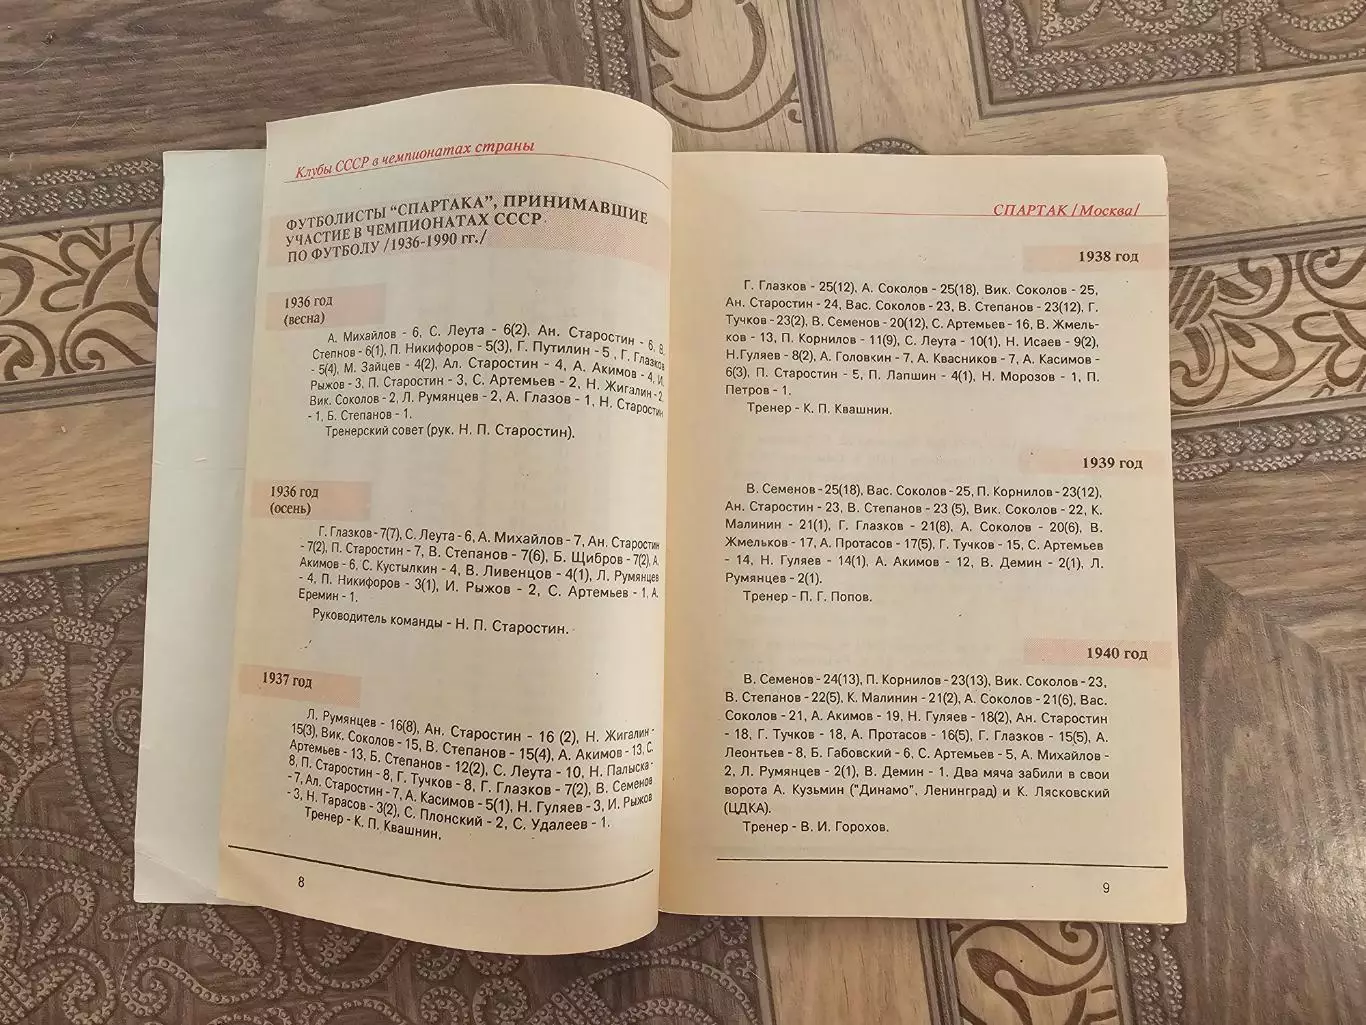 Клубы СССР в чемпионатах страны
ФУТБОЛИСТЫ "СПАРТАКА", ПРИНИМАВШИЕ
УЧАСТИЕ В ЧЕМПИОНАТАХ СССР
ПО ФУТБОЛУ /1936-1990 гг./
1936 год
(весна)
А. Михайлов - 6, С. Леута - 6(2), Ан. Старостин - 6, В.
Степнов - 6(1), П. Никифоров - 5(3), Г. Путилин - 5 , Г. Глазков
- 5(4), М. Зайцев - 4(2), Ал. Старостин - 4, А. Акимов - 4, И.
Рыжов - 3, П. Старостин - 3, С. Артемьев - 2, Н. Жигалин - 2,
Вик. Соколов - 2, Л. Румянцев - 2, А. Глазов - 1, Н. Старостин
- 1, Б. Степанов - 1.
Тренерский совет (рук. Н. П. Старостин).
1936 год
(осень)
Г. Глазков - 7(7), С. Леута - 6, А. Михайлов - 7, Ан. Старостин
- 7(2), П. Старостин - 7, В. Степанов - 7(6), Б. Щибров - 7(2), А.
Акимов - 6, С. Кустылкин - 4, В. Ливенцов - 4(1), Л. Румянцев
- 4, П. Никифоров - 3(1), И. Рыжов - 2, С. Артемьев - 1, А.
Еремин - 1.
Руководитель команды - Н. П. Старостин.
1937 год
Л. Румянцев - 16(8), Ан. Старостин - 16 (2), Н. Жигалин -
15(3), Вик. Соколов - 15, В. Степанов - 15(4), А. Акимов - 13, С.
Артемьев - 13, Б. Степанов - 12(2), С. Леута - 10, Н. Палыска -
8, П. Старостин - 8, Г. Тучков - 8, Г. Глазков - 7(2), В. Семенов
- 7, Ал. Старостин - 7, А. Касимов - 5(1), Н. Гуляев - 3, И. Рыжов
- 3, Н. Тарасов - 3(2), С. Плонский - 2, С. Удалеев - 1.
Тренер - К. П. Квашнин.
8
СПАРТАК /Москва/
1938 год
Г. Глазков - 25(12), А. Соколов - 25(18), Вик. Соколов - 25,
Ан. Старостин - 24, Вас. Соколов - 23, В. Степанов - 23(12), Г.
Тучков - 23(2), В. Семенов - 20(12), С. Артемьев - 16, В. Жмель-
ков - 13, П. Корнилов - 11(9), С. Леута - 10(1), Н. Исаев - 9(2),
Н.Гуляев - 8(2), А. Головкин - 7, А. Квасников - 7, А. Касимов -
6(3), П. Старостин - 5, П. Лапшин - 4(1), Н. Морозов - 1, П.
Петров - 1.
Тренер - К. П. Квашнин.
1939 год
В. Семенов - 25(18), Вас. Соколов - 25, П. Корнилов - 23(12),
Ан. Старостин - 23, В. Степанов - 23 (5), Вик. Соколов - 22, К.
Малинин - 21(1), Г. Глазков - 21(8), А. Соколов - 20(6), В.
Жмельков - 17, А. Протасов - 17(5), Г. Тучков - 15, С. Артемьев
- 14, Н. Гуляев - 14(1), А. Акимов - 12, В. Демин - 2(1), Л.
Румянцев - 2(1).
Тренер - П. Г. Попов.
1940 год
В. Семенов - 24(13), П. Корнилов - 23(13), Вик. Соколов - 23,
В. Степанов - 22(5), К. Малинин - 21(2), А. Соколов - 21(6), Вас.
Соколов - 21, А. Акимов - 19, Н. Гуляев - 18(2), Ан. Старостин
- 18, Г. Тучков - 18, А. Протасов - 16(5), Г. Глазков - 15(5), А.
Леонтьев - 8, Б. Габовский - 6, С. Артемьев - 5, А. Михайлов -
2, Л. Румянцев - 2(1), В. Демин - 1. Два мяча забили в свои
ворота А. Кузьмин ("Динамо", Ленинград) и К. Лясковский
(ЦДКА).
Тренер - В. И. Горохов.
9